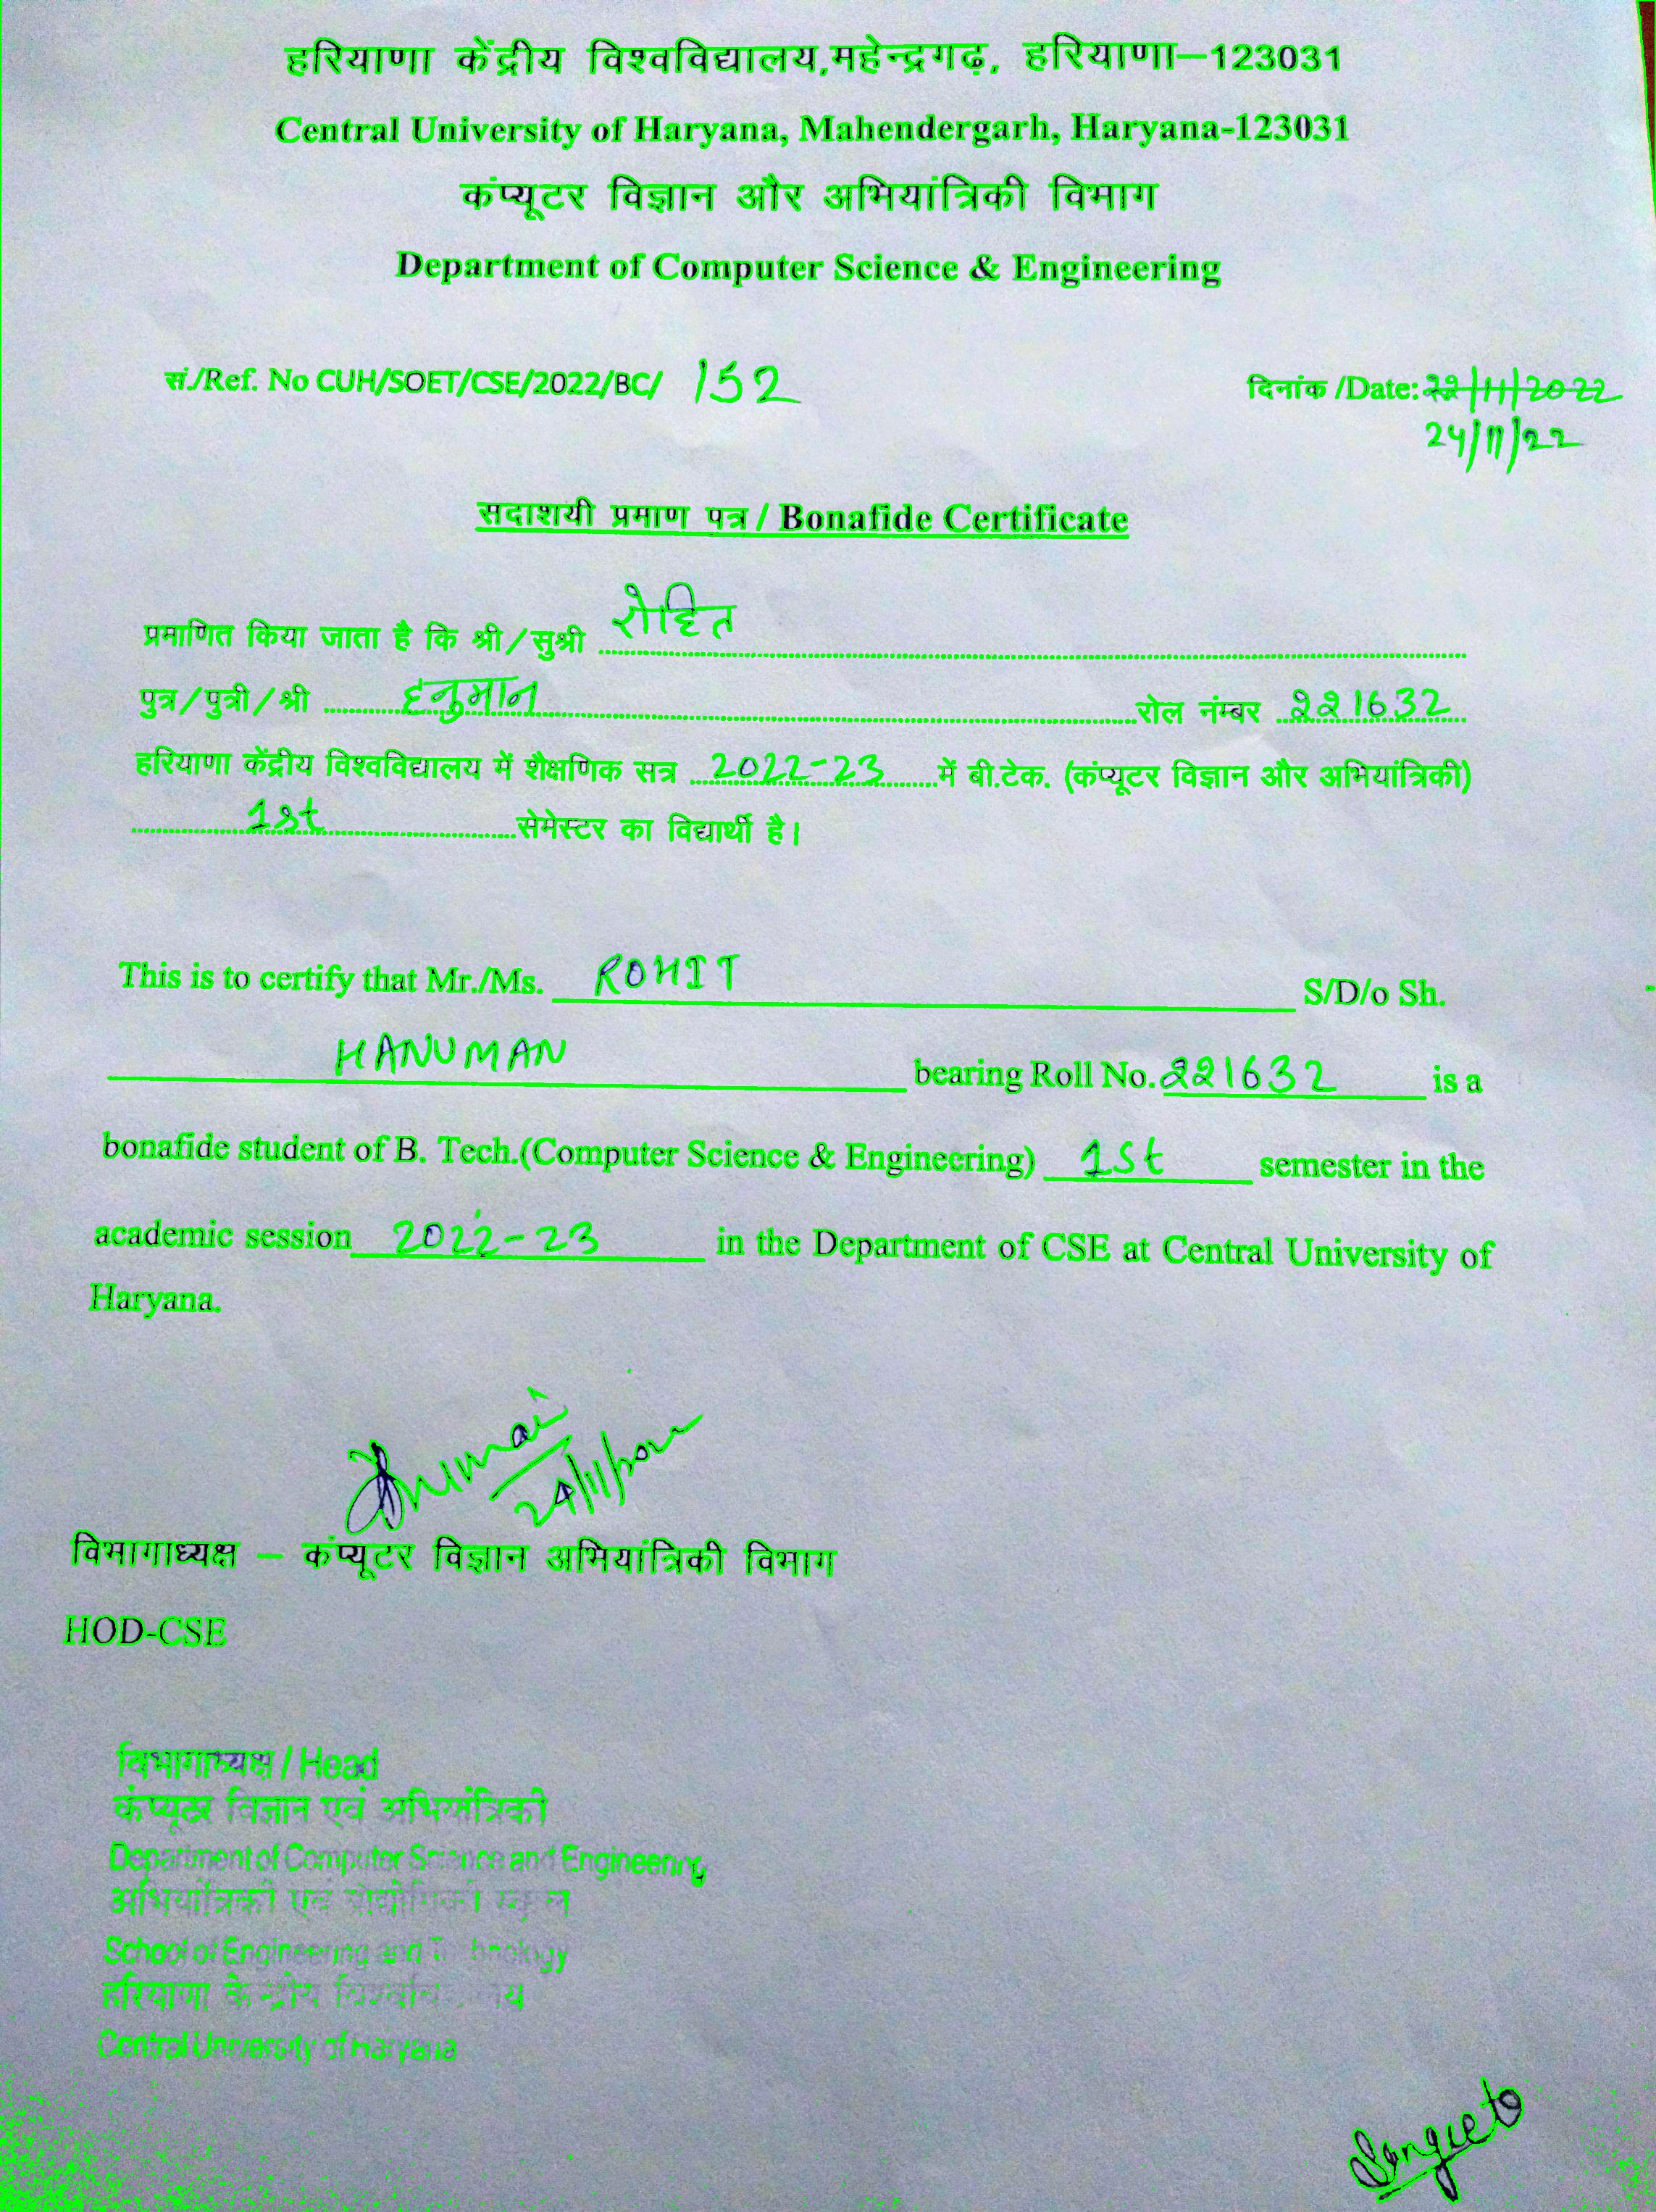 हरियाणा केंद्रीय विश्वविद्यालय,महेन्द्रगढ़, हरियाणा–123031
Central University of Haryana, Mahendergarh, Haryana-123031
कंप्यूटर विज्ञान और अभियांत्रिकी विभाग
Department of Computer Science & Engineering
सं./Ref. No CUH/SOET/CSE/2022/BC/ 152 दिनांक /Date: 22/11/2022
24/11/22
सदाशयी प्रमाण पत्र / Bonafide Certificate
प्रमाणित किया जाता है कि श्री/सुश्री रोहित
पुत्र/पुत्री/श्री हनुमान रोल नंबर 221632
हरियाणा केंद्रीय विश्वविद्यालय में शैक्षणिक सत्र 2022-23 में बी.टेक. (कंप्यूटर विज्ञान और अभियांत्रिकी)
1st सेमेस्टर का विद्यार्थी है।
This is to certify that Mr./Ms. ROHIT S/D/o Sh.
HANUMAN bearing Roll No. 221632 is a
bonafide student of B. Tech.(Computer Science & Engineering) 1st semester in the
academic session 2022-23 in the Department of CSE at Central University of
Haryana.
24/11/2022
विभागाध्यक्ष – कंप्यूटर विज्ञान अभियांत्रिकी विभाग
HOD-CSE
विभागाध्यक्ष / Head
कंप्यूटर विज्ञान एवं अभियांत्रिकी
Department of Computer Science and Engineering
अभियांत्रिकी एवं प्रौद्योगिकी स्कूल
School of Engineering and Technology
हरियाणा केन्द्रीय विश्वविद्यालय
Central University of Haryana
Sangeeta